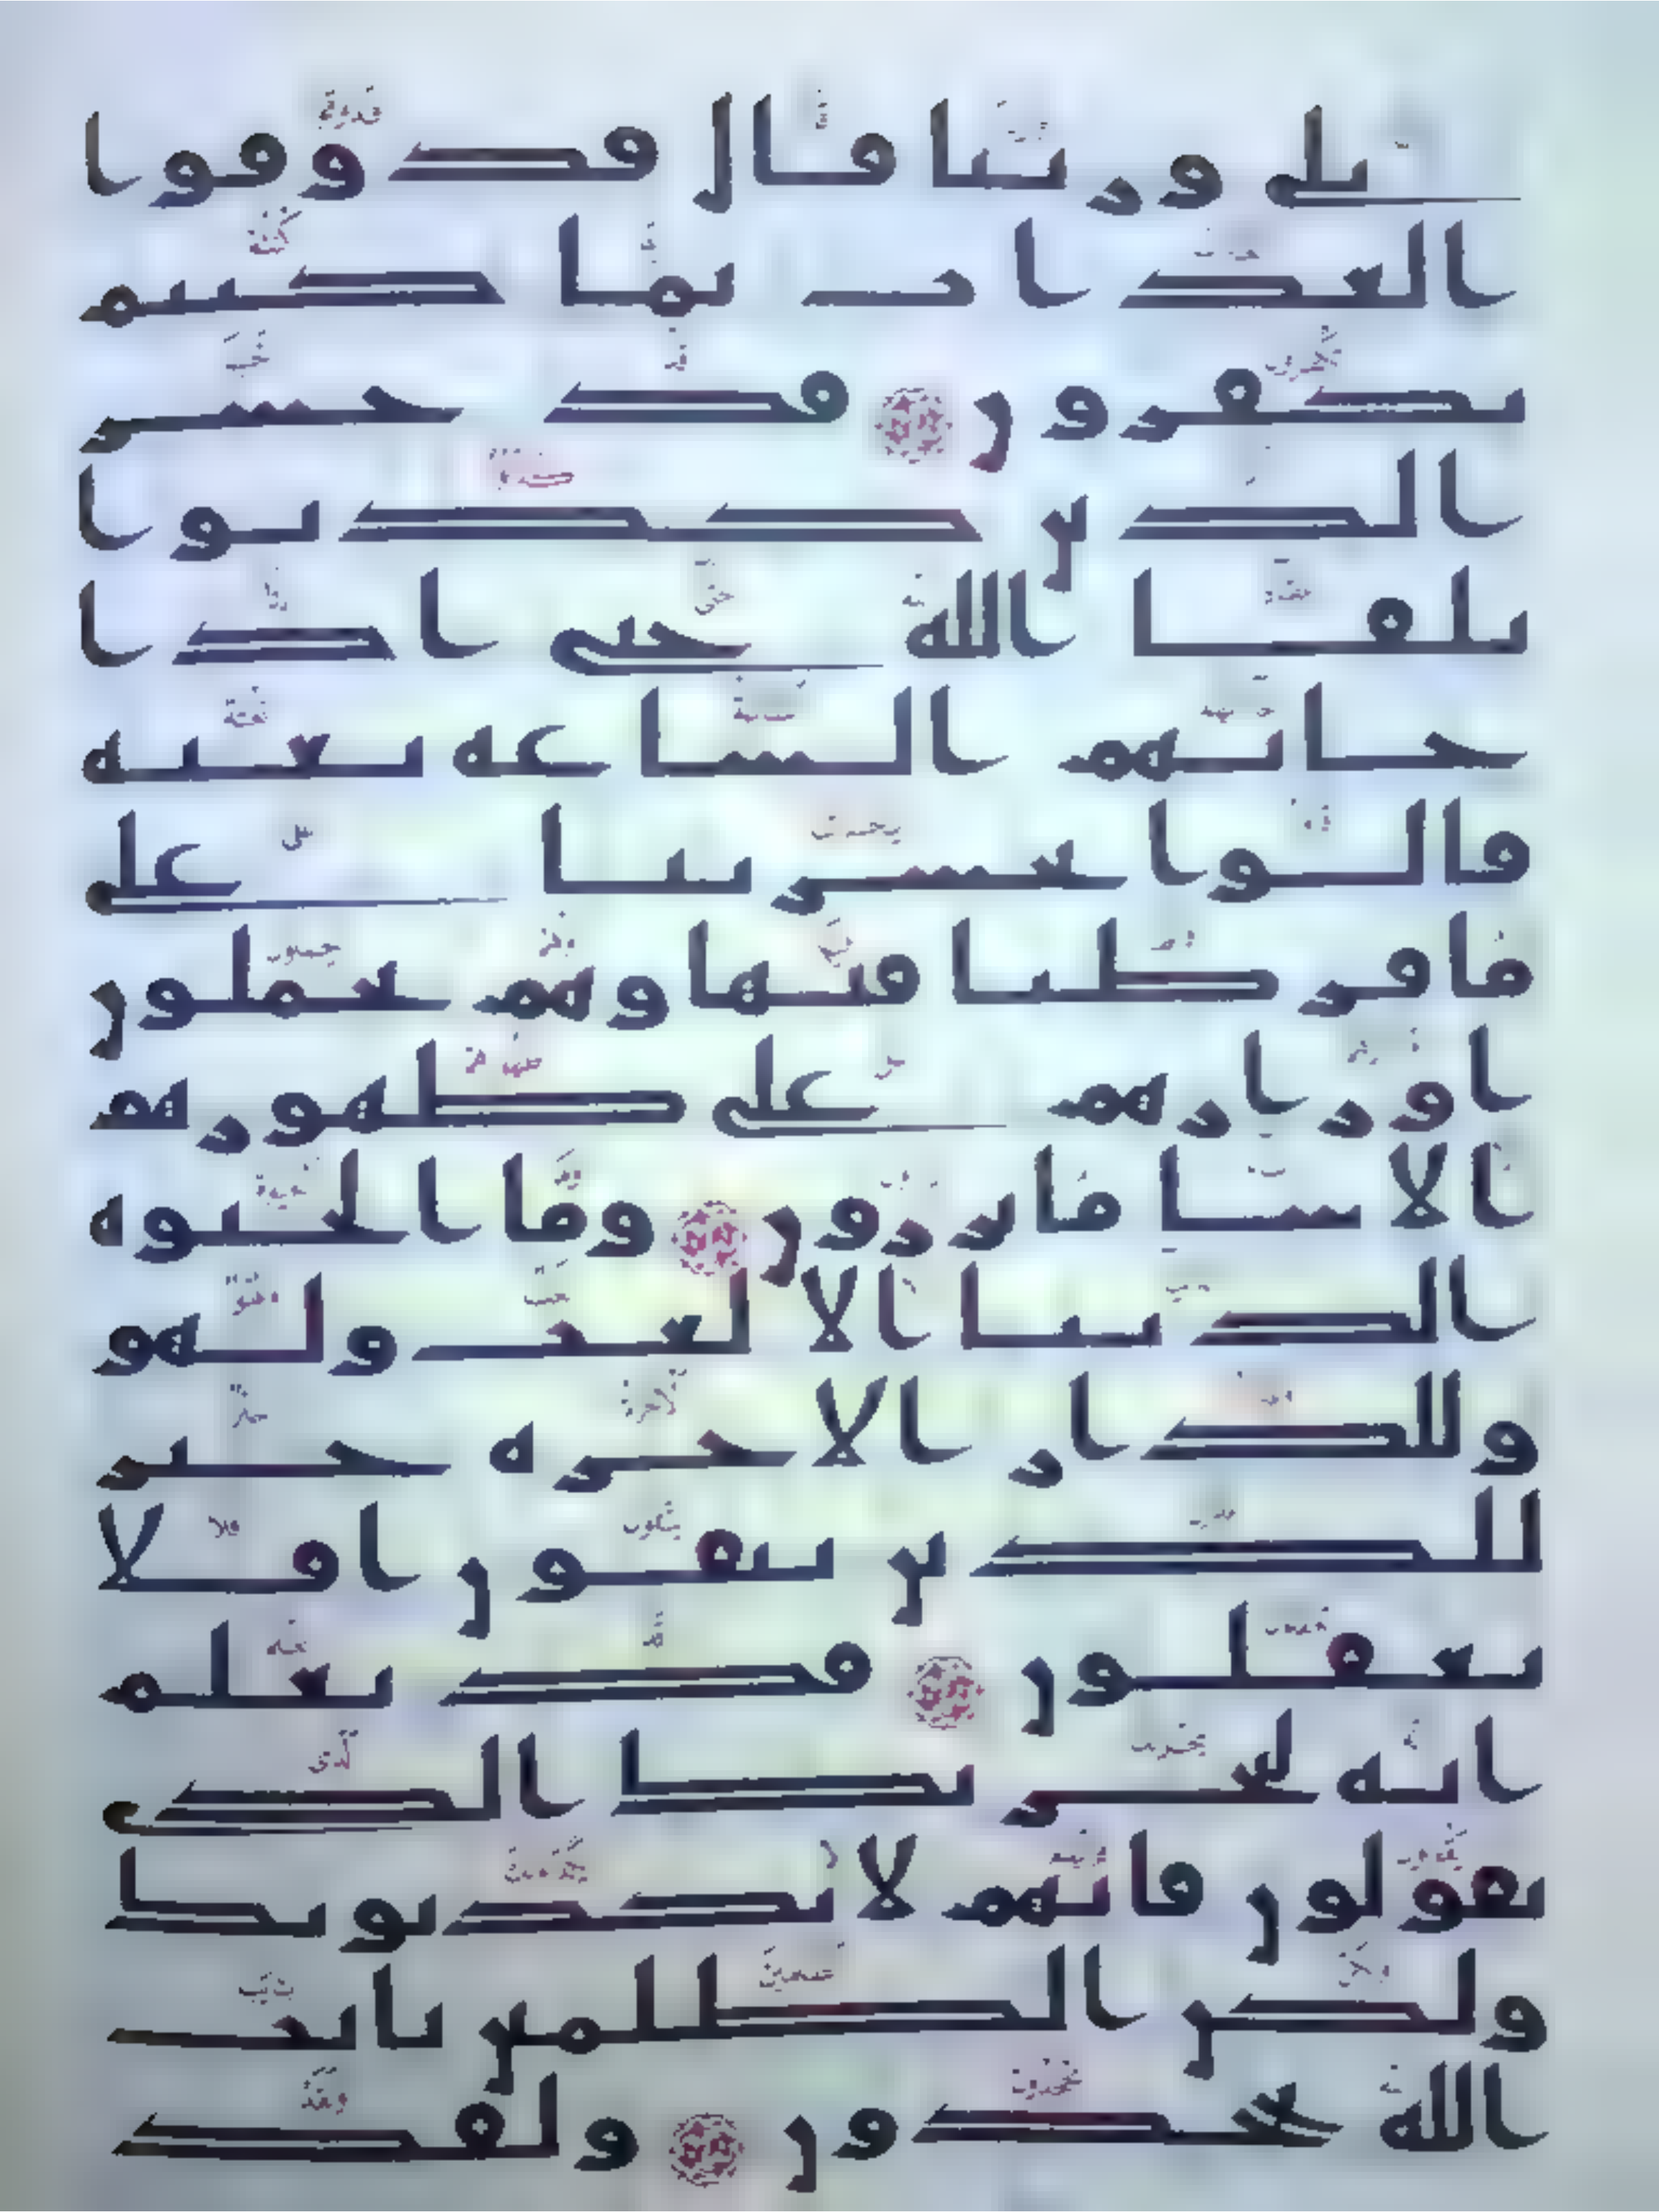 بلى وربنا قال فذوقوا
العذاب بما كنتم
تكفرون قد خسر
الذين كذبوا
بلقا الله حتى اذا
جاتهم الساعة بغتة
قالوا يحسرتنا على
ما فرطنا فيها وهم يحملون
اوزارهم على ظهورهم
الا سا ما يزرون وما الحيوة
الدنيا الا لعب ولهو
وللدار الاخرة خير
للذين يتقون افلا
تعقلون قد نعلم
انه ليحزنك الذي
يقولون فانهم لا يكذبونك
ولكن الظلمين بايت
الله يجحدون ولقد